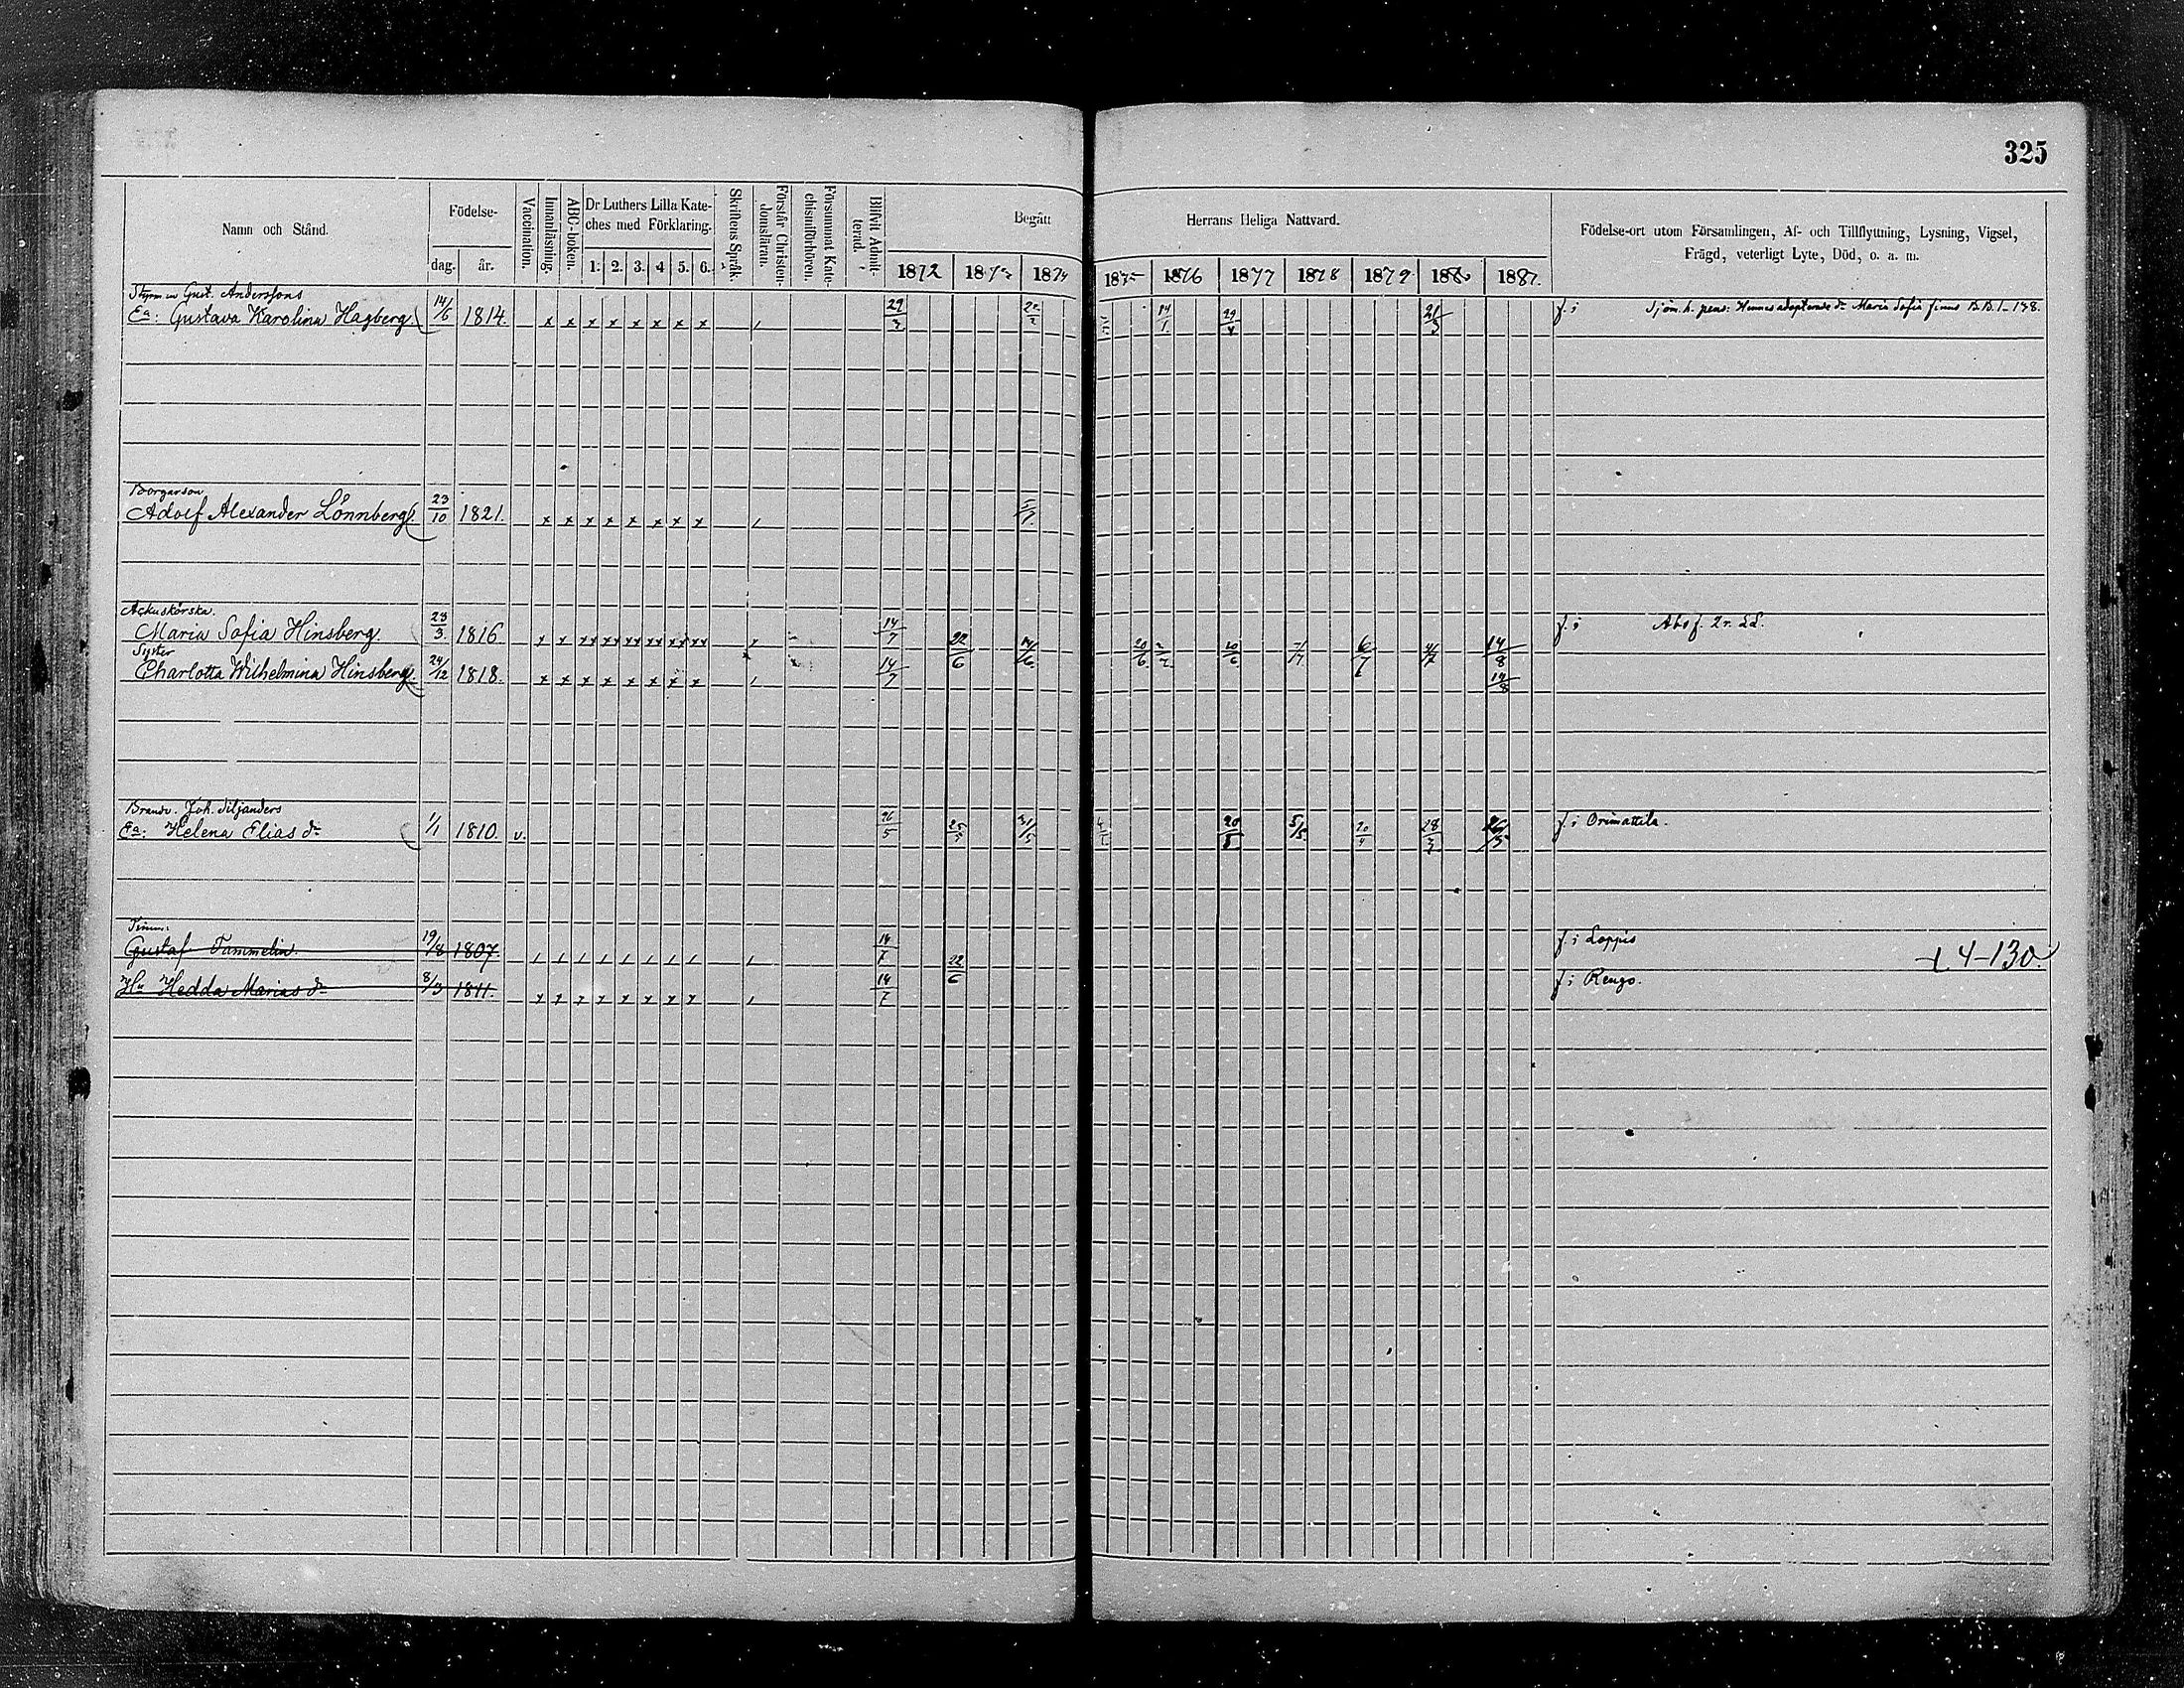 325
Namn och Stånd.
Födelse-
dag.
år.
Vaccination.
Innanläsning.
ABC-boken.
Dr Luthers Lilla Kate-
ches med Förklaring.
1. 2. 3. 4 5. 6.
Skriftens Språk.
Förstår Christen-
domsläran.
Försummat Kate-
chismiförhören.
Blifvit Admit-
terad.
Begått
Herrans Heliga Nattvard.
1872 1873 1874 1875 1876 1877 1878 1879 1880 1881
Födelse-ort utom Församlingen, Af- och Tillflyttning, Lysning, Vigsel,
Frägd, veterligt Lyte, Död, o. a. m.
Gust. Anderssons
Ea: Gustava Karolina Hagberg 14/6 1814. x x x x x x x x 29/3 14/1 29/4 21/3 f. i Sjöm. h. pens: Hennes adopterade dr Maria Sofia finnes B.B. 1-178.
Borgarson
Adolf Alexander Lönnberg 23/10 1821. x x x x x x x x
Ackuskörska.
Maria Sofia Hinsberg 23/3 1816 x x xx xx xx xx xx xx 14/7 22/6 20/6 20/6 6/7 14/8 f. i
Syster
Charlotta Wilhelmina Hinsberg. 24/12 1818. x x x x x x x x 14/7 14/8
Joh. Siljanders
Ea: Helena Elias dr 1/1 1810. v. 26/5 31/5 20/5 5/5 20/4 28/3 f. i Orimattila.
Timm:
Gustaf Tammelin. 19/8 1807. 14/7 22/6 f. i Loppis 4-130
Hu Hedda Marias dr 8/3 1811. x x x x x x x x 14/7 f. i Rengo.